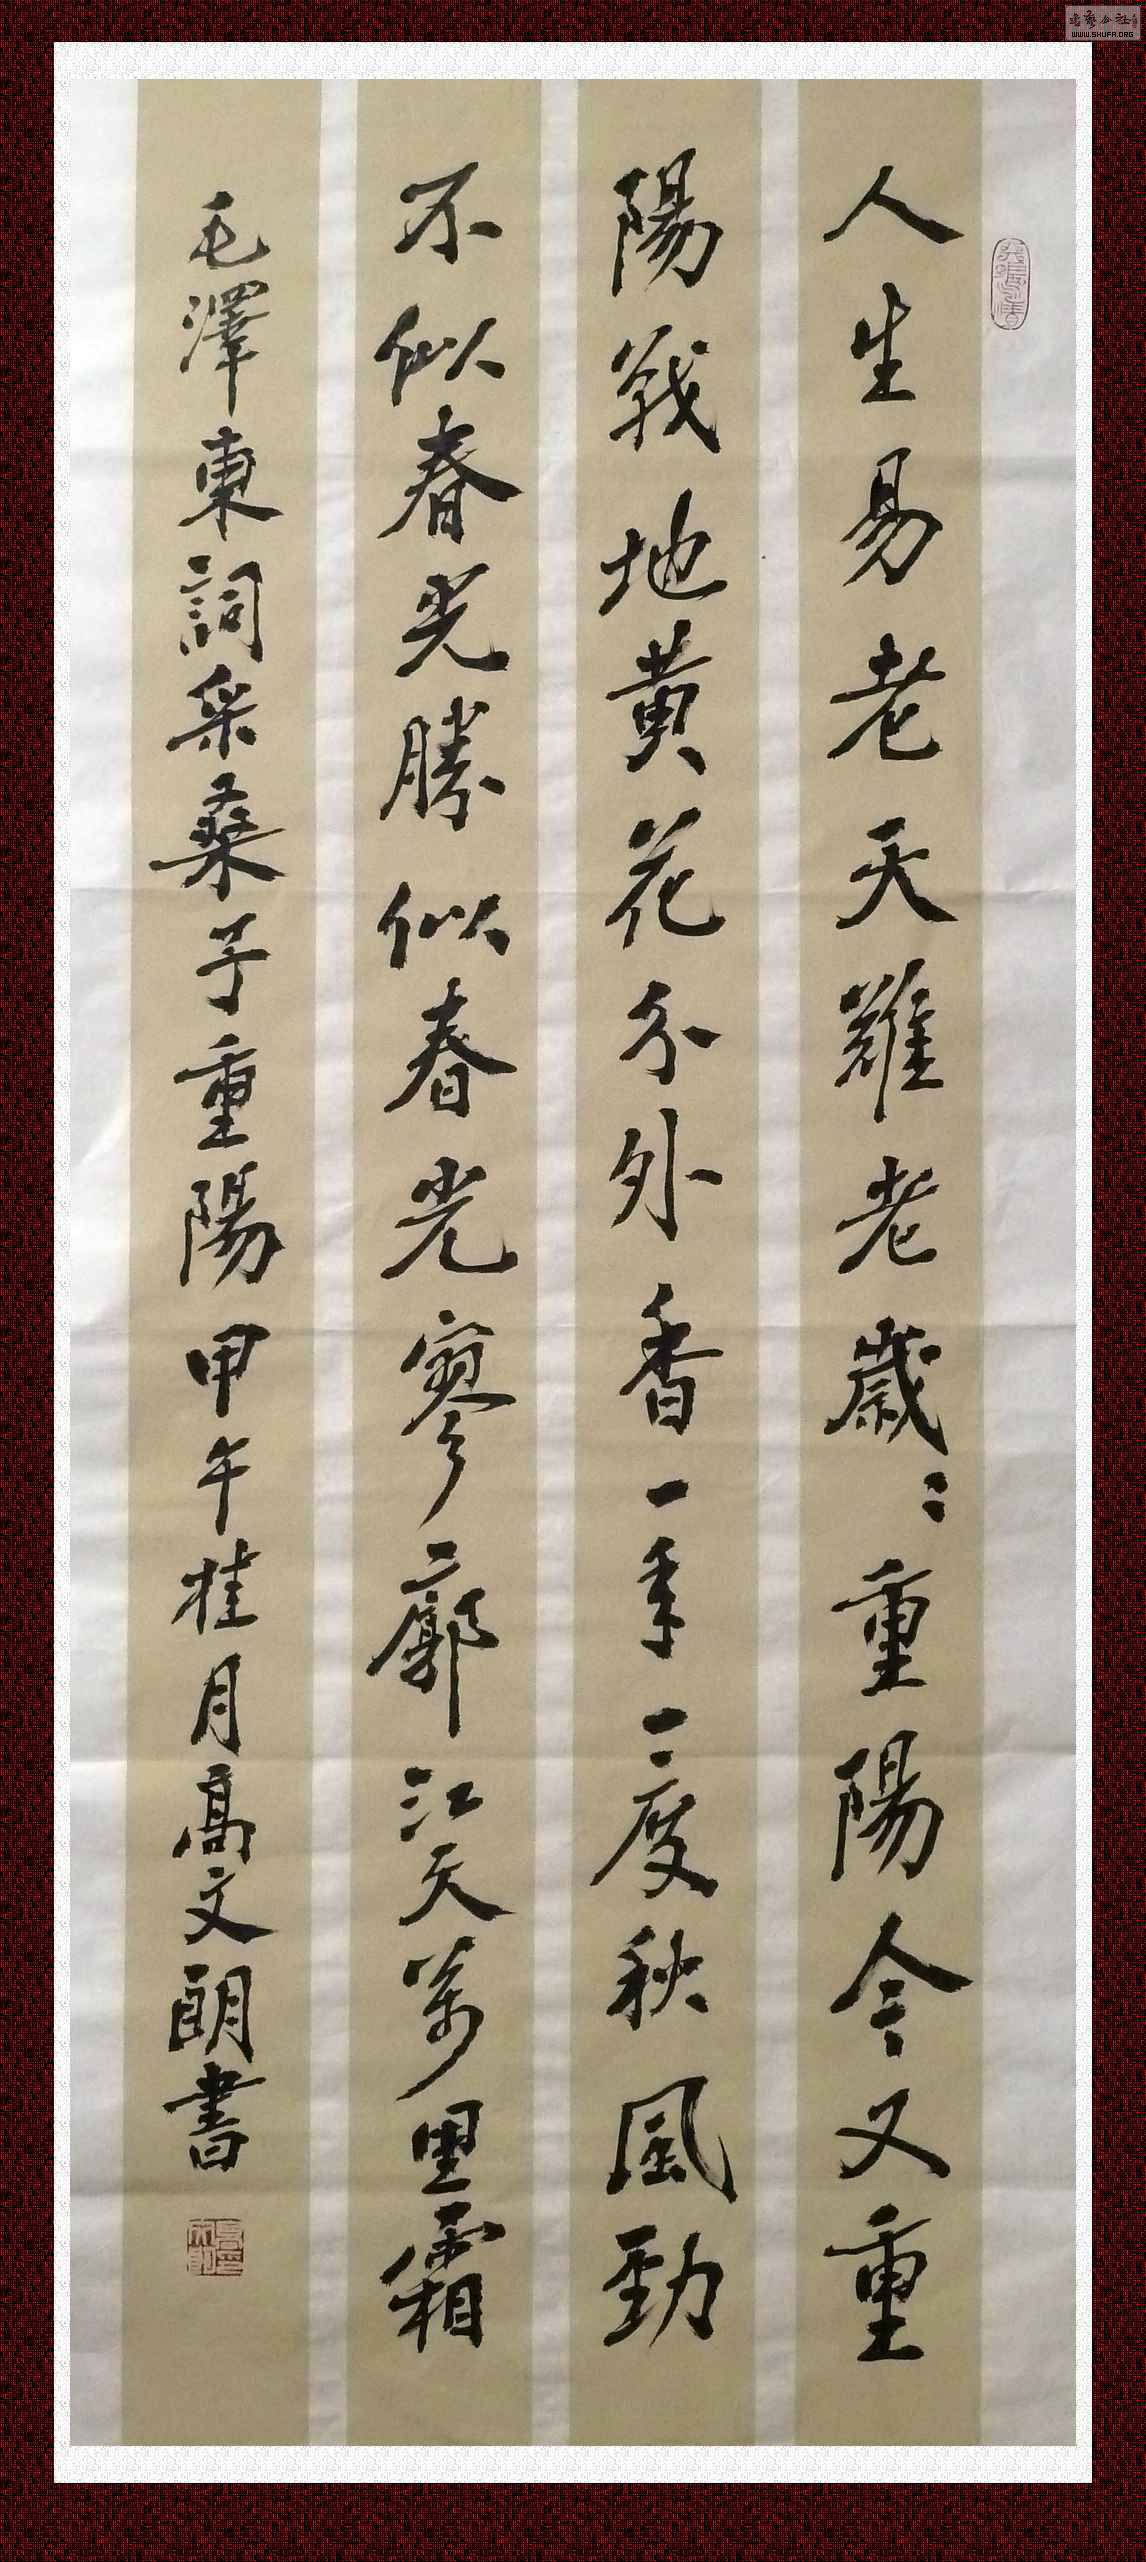 人生易老天難老歲々重陽今又重
陽戰地黄花分外香一年一度秋風勁
不似春光勝似春光寥廓江天萬里霜
毛澤東詞采桑子重陽甲午桂月高文朗書
WWW.SHUFA.ORG